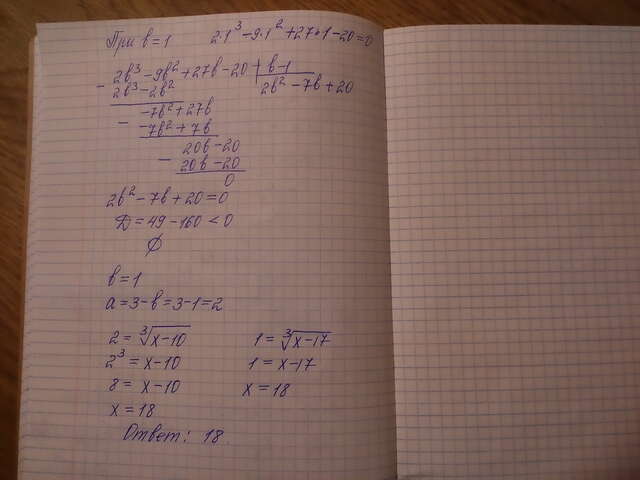 При b=1 2·1³-9·1²+27·1-20=0
- 2b³-9b²+27b-20 | b-1
2b³-2b² 2b²-7b+20
- -7b²+27b
-7b²+7b
- 20b-20
20b-20
0
2b²-7b+20=0
D=49-160<0
∅
b=1
a=3-b=3-1=2
2=∛(x-10) 1=∛(x-17)
2³=x-10 1=x-17
8=x-10 x=18
x=18
Ответ: 18.